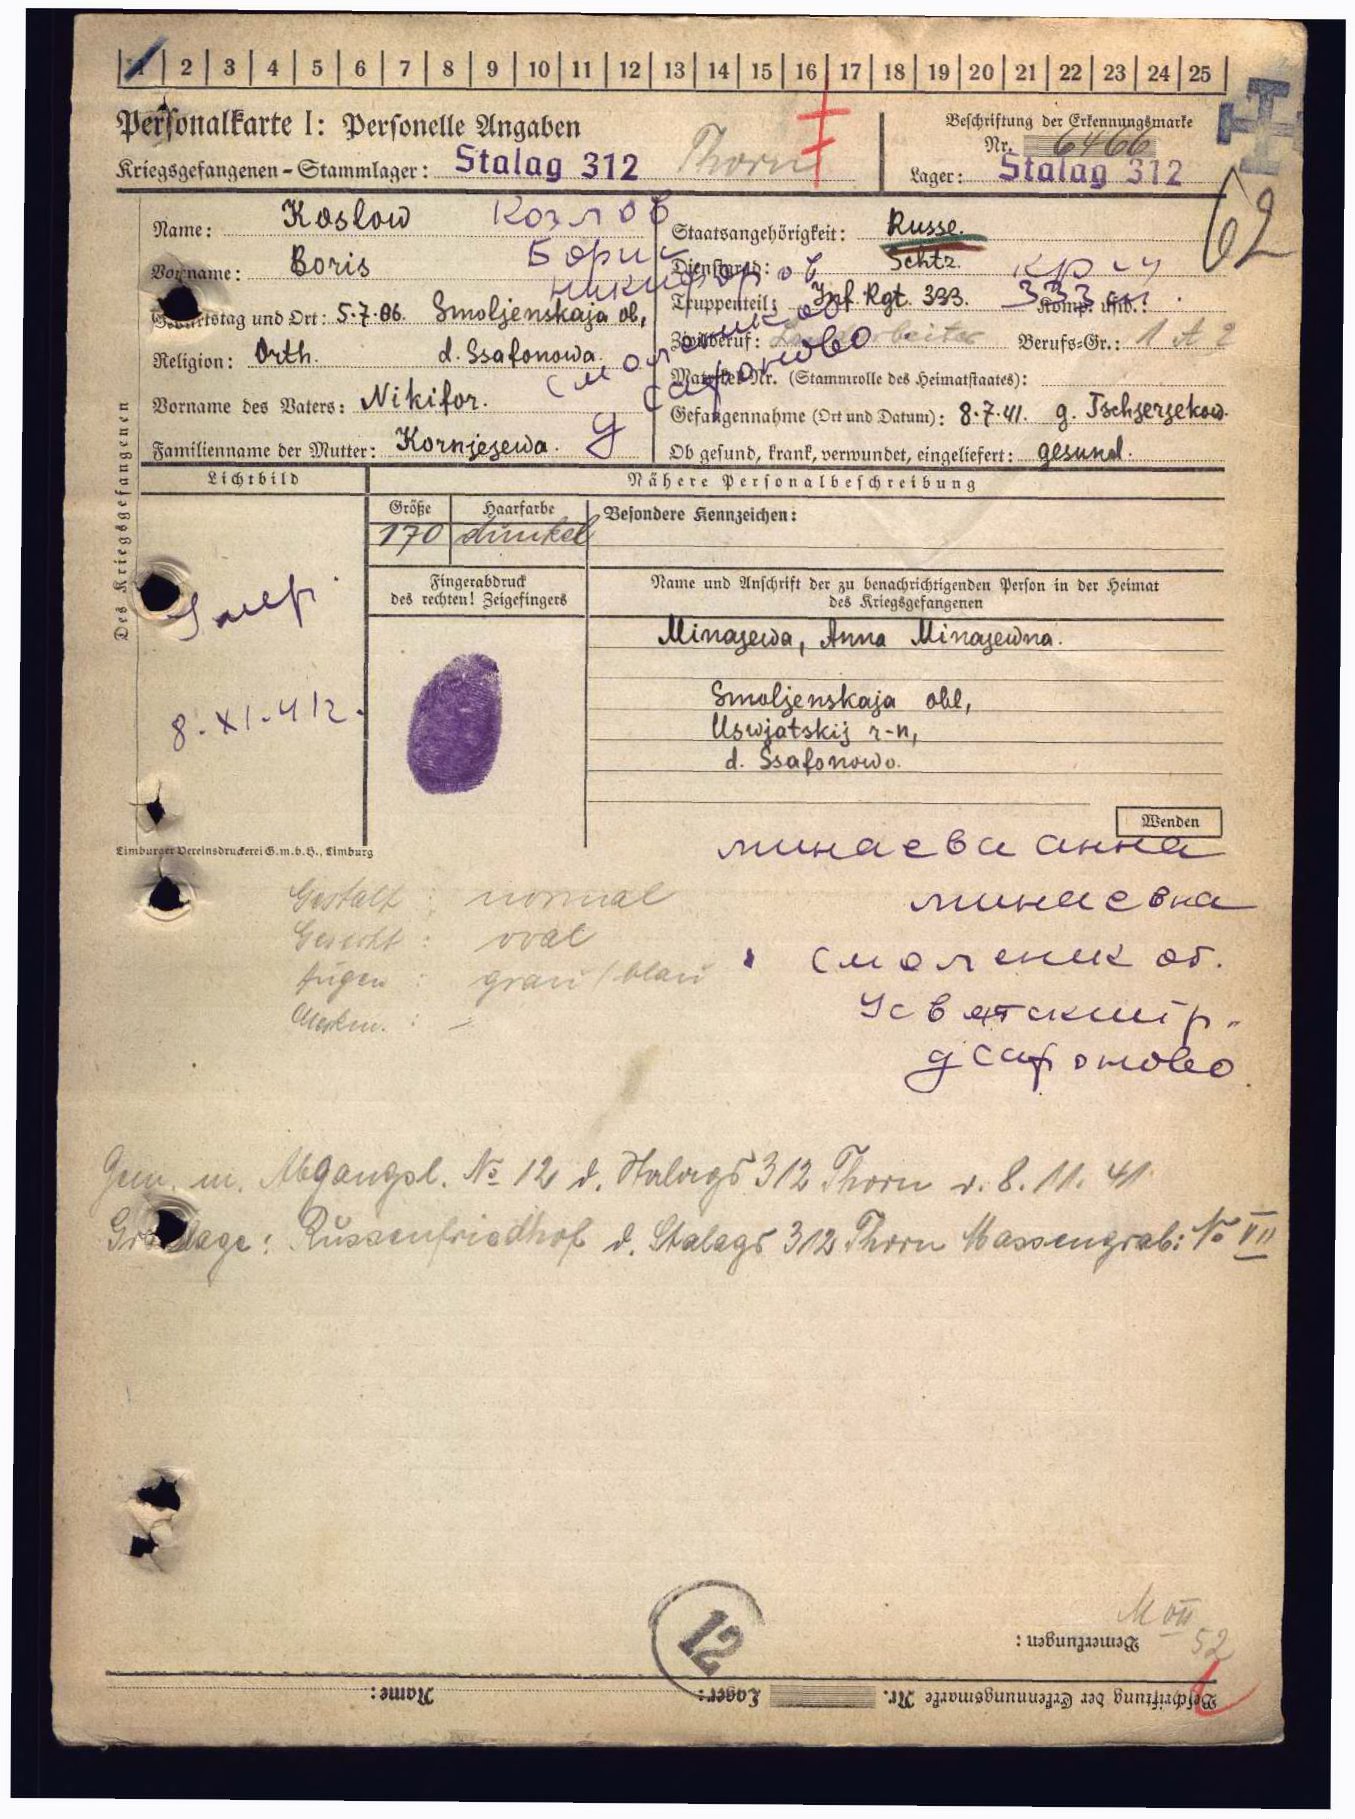 1 2 3 4 5 6 7 8 9 10 11 12 13 14 15 16 17 18 19 20 21 22 23 24 25
Personalkarte I: Personelle Angaben
Kriegsgefangenen-Stammlager: Stalag 312 Thorn
Beschriftung der Erkennungsmarke
Nr. 6466
Lager: Stalag 312
62
Des Kriegsgefangenen
Name: Koslow Козлов
Vorname: Boris Борис
никифоров
Geburtstag und Ort: 5.7.06. Smoljenskaja ob,
Religion: Orth. d. Ssafonowa.
смоленской
д сафоново
Vorname des Vaters: Nikifor.
Familienname der Mutter: Kornjejewa.
Staatsangehörigkeit: Russe.
Dienstgrad: Schtz.
Truppenteil: Inf. Rgt. 333. Komp. usw.: 333 сп.
Zivilberuf: Landarbeiter Berufs-Gr.: 1 A 2
Matrikel Nr. (Stammrolle des Heimatstaates):
Gefangennahme (Ort und Datum): 8.7.41. g. Tschserjekow.
Ob gesund, krank, verwundet, eingeliefert: gesund.
Lichtbild
Nähere Personalbeschreibung
Größe Haarfarbe Besondere Kennzeichen:
170 dunkel
Fingerabdruck
des rechten! Zeigefingers
Name und Anschrift der zu benachrichtigenden Person in der Heimat
des Kriegsgefangenen
Minajewa, Anna Minajewna.
Smoljenskaja obl,
Uswjatskij r-n,
d. Ssafonowo.
Умер
8-XI-41г.
Wenden
Limburger Vereinsdruckerei G.m.b.H., Limburg
минаева анна
минаевна
смоленск об.
Усвятский р-
д сафоново
Gestalt: normal
Gesicht: oval
Augen: grau/blau
Merkm.: -
Gem. m. Abgangsl. № 12 d. Stalags 312 Thorn v. 8.11.41
Grablage: Russenfriedhof d. Stalags 312 Thorn Massengrab: № VII
12
M VII
52
Bemerkungen:
Beschriftung der Erkennungsmarke Nr. Lager: Name: